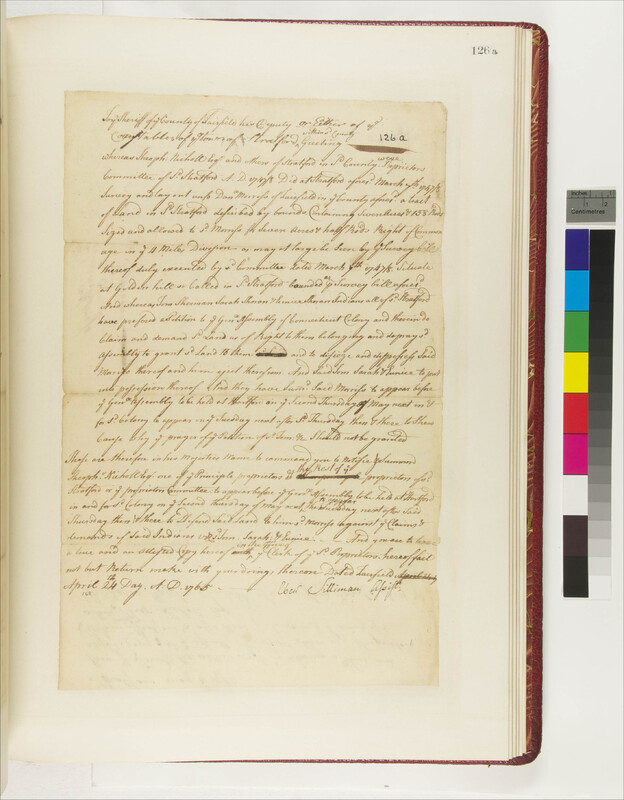 126a
To ye Sheriff of ye County of Fairfield his Deputy or Either of ye
Constables of ye Town of Stratford in said County Greeting
126a
Whereas Theoph. Nichols Esqr and others of Stratford in Sd County Proprietors
Committee of Sd Stratford A.D. 1747/8 Did at Stratford aforesd March 7th 1747/8
Survey and lay out unto Danl Morriss of Fairfield in ye County aforesd a tract
of Land in Sd Stratford described by bounds Containing Seven Acres & 15½ Rods
and allowed to Sd Morriss for Seven Acres & half Rods Right of Common
age in ye 4 Miles Division as may at large be Seen by ye Survey bill
thereof duly executed by sd Committee Dated March 7th 1747/8 Situate
at Golden hill so Called in Sd Stratford bounded as ye Survey bill aforesd
And whereas Tom Sherman Sarah Shoran & Eunice Shoran Indians all of Sd Stratford
have prefered a Petition to ye Genl Assembly of Connecticut Colony and therein do
Claim and demand Sd Land as of Right to them belonging and do pray sd
Assembly to grant Sd Land to them and to disseize and dispossess Said
Morriss thereof and him eject therefrom And Sd Tom Sarah & Eunice to put
into possession thereof And they have Said Morriss to appear before
ye Genl Assembly to be held at Hartford on ye Second Thursday of May next in &
for Sd Colony to appear on ye Tuesday next after Sd Thursday then & there to Shew
Cause why ye prayer of ye Petition of Sd Tom &c Should not be granted
These are therefore in his Majesties Name to command you to Notifie & Summons
Theoph. Nichols Esqr one of ye Principle proprietors & the Rest of ye proprietors of sd
Stratford or ye proprietors Committee to appear before ye Genl Assembly to be held at Hartford
in and for Sd Colony on ye Second Thursday of May next, to appear on the Tuesday next after Said
Thursday then & there to Defend Said Land & him Sd Morriss against ye Claims &
demands of Said Indians viz Tom Sarah & Eunice. And you are to leave
a true and attested Copy hereof with ye Clerk of ye Sd Proprietors hereof fail
not but Return make with your doings thereon Dated Fairfield
April 24th Day A.D. 1765
Ebenr Silliman Assist
inches
Centimetres